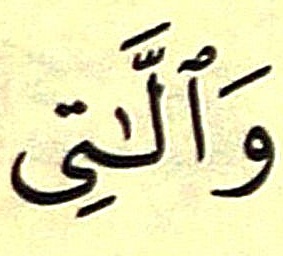 وَٱلَّٰتِى